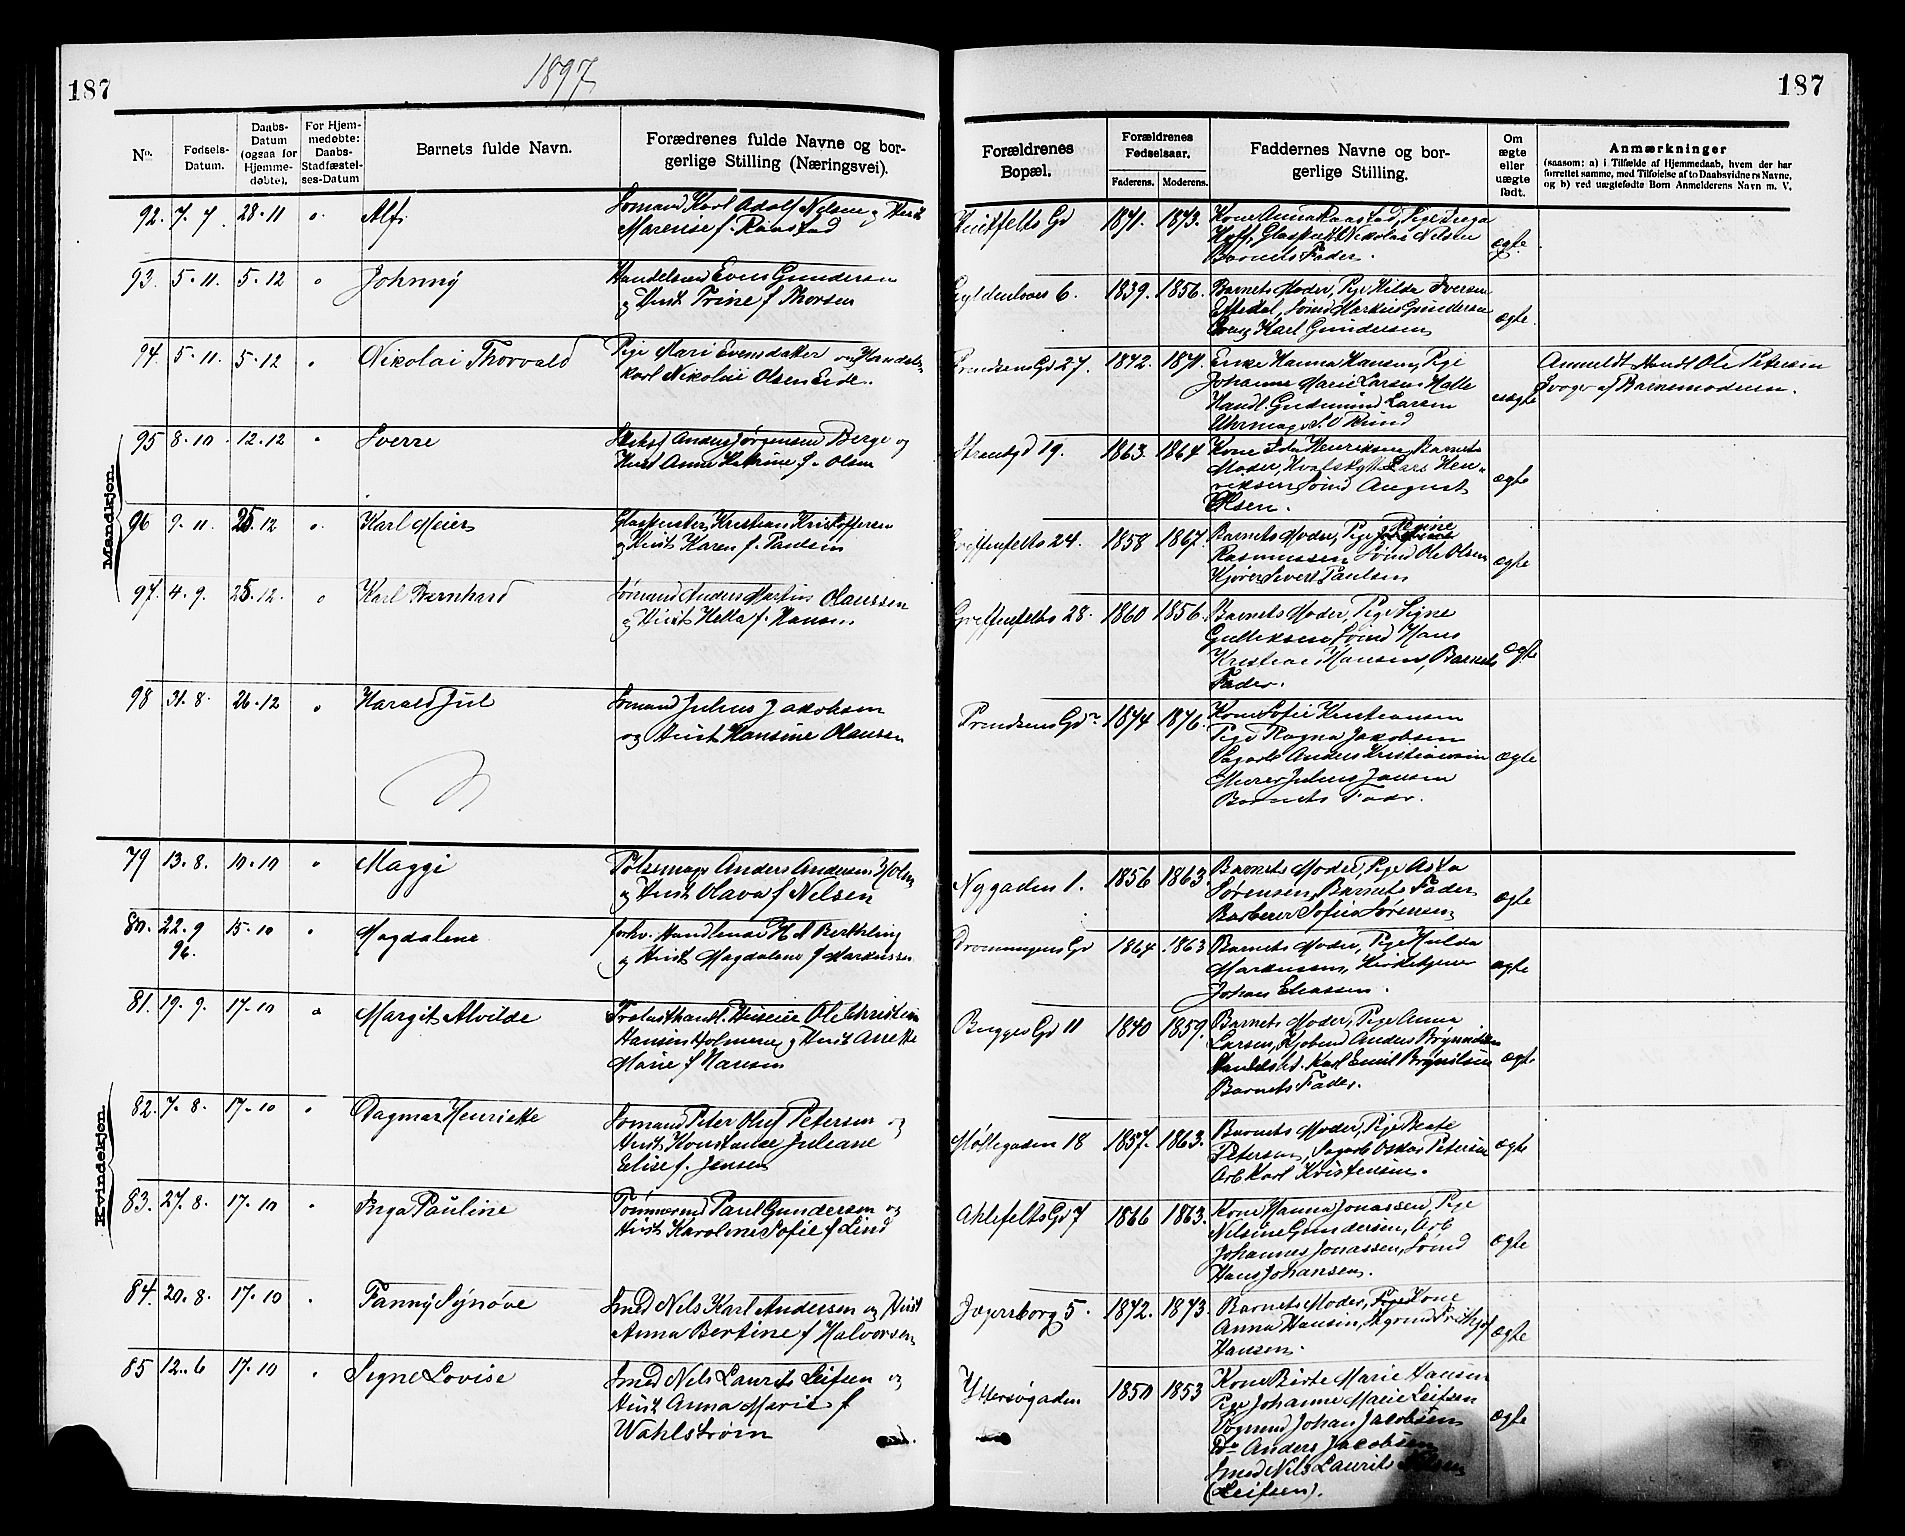 187
1897
187
No.
Fødsels-Datum.
Daabs-Datum (ogsaa for Hjemme-døbte).
For Hjem-medøbte: Daabs-Stadfæstel-ses-Datum
Barnets fulde Navn.
Forældrenes fulde Navne og bor-
gerlige Stilling (Næringsvei).
Forældrenes
Bopæl.
Forældrenes
Fødselsaar.
Faderens. Moderens.
Faddernes Navne og bor-
gerlige Stilling.
Om
ægte
eller
uægte
født.
Anmærkninger
(saasom: a) i Tilfælde af Hjemmedaab, hvem der har
forrettet samme, med Tilføielse af to Daabsvidners Navne,
og b) ved uægtefødte Børn Anmelderens Navn m. V.
Mandkjøn.
92. 7-7 28-11 " Alf Sømand Karl Adolf Nilsen og Hust
Marenise f. Raastad
Huitfelts Gd 1871. 1873. Kone Anna Raastad, Pige Inga
Hoff, Nikolai Nilsen
Barnets Fader. ægte.
93. 5-11. 5-12 " Johnny Handelsmd Even Gundersen
og Hust Trine f Thorsen
Gyldenløves 6. 1839. 1856. Barnets Moder, Pige Hilda Iversen
Sømd Markus Gundersen
Karl Gundersen ægte.
94. 5-11. 5-12 " Nikolai Thorvald Pige Mari Evensdatter og Handels-
karl Nikolai Olsen Eide.
Prindsens Gd 27. 1872. 1871. Enke Hanna Hansen, Pige
Johanne Marie Larsen Holte
Handl. Gudmund Larsen
Uhrmager uægte
Anmeldt Handl Ole Petersen
Svoger af Barnemoderen.
95 8-10. 12-12 " Sverre Anders Jørgensen Berge og
Hust Anne Katrine f. Olsen
Strandgd 19. 1863. 1864 Kone Henriksen, Barnets
Moder, Lars Hen-
riksen, Sømd August
Olsen. ægte
96 9-11. 25-12 " Karl Meier Kristian Kristoffersen
og Hust Karen f. Paulsen
Griffenfelts 24. 1858 1867. Barnets Moder, Pige Regine
Rasmussen, Sømd Ole Olsen
Kjører Sivert Paulsen ægte
97. 4-9. 25-12. " Karl Bernhard Sømand Anders Martin Olaussen
og Hust Helle f. Hansen
Griffenfelts 28. 1860 1856. Barnets Moder, Pige Signe
Gulliksen, Sømd Hans
Kristian Hansen, Barnets
Fader. ægte
98 31-8. 26-12 " Harald Jul Sømand Julius Jakobsen
og Hust Hansine Olausen
Prindsens Gd 1874 1876. Kone Sofie Kristiansen
Pige Ragna Jakobsen
Sagarb Anders Kristiansen
Murer Julius Jansen
Barnets Fader. ægte
Kvindekjøn.
79 13-8. 10-10 " Maggi Pølsemager Anders Andersen Holm
og Hust Olava f Nilsen
Nygaden 1. 1856 1863. Barnets Moder, Pige Asta
Sørensen, Barnets Fader
Barberer Sofus Sørensen ægte
80. 22-9 96. 15-10 " Magdalene forhv. Handlende H A Berthling
og Hust Magdalene f Markussen
Dronningens Gd 1864 1863 Barnets Moder, Pige Hulda
Markussen, Kirketjener
Johan Eliassen. ægte
81. 19-9. 17-10 " Margit Alvilde Ole Christian
Hansen Holmene og Hust Anette
Marie f Hansen
Brygges Gd 11 1840 1859. Barnets Moder, Pige Anna
Larsen, Kjøbmd Anders Brynildsen
Karl Emil Brynildsen
Barnets Fader. ægte
82. 7-8. 17-10 " Dagmar Henriette Sømand Peter Oluf Petersen og
Hust Konstanse Juliane
Elise f. Jensen
Møllegaden 18 1857. 1863. Barnets Moder, Pige Beate
Petersen, Sagarb Oskar Petersen
Arb Karl Kristensen. ægte
83. 27-8. 17-10 " Inga Pauline Tømmermd Paul Gundersen og
Hust Karoline Sofie f Lind
Ahlefelts Gd 7 1866 1863. Kone Hanna Jonassen, Pige
Nilsine Gundersen, Arb
Johannes Jonassen, Sømd
Hans Johansen. ægte
84. 20-8. 17-10 " Fanny Synøve Smed Nils Karl Andersen og Hust
Anna Bertine f Halvorsen
Jægersborg 5. 1872. 1873. Barnets Moder, Pige Kone
Anna Hansen, Fridtjof
Hansen. ægte
85 12-6 17-10 " Signe Lovise Smed Nils Laurits Leifsen og
Hust Anna Marie f
Wahlstrøm
Yttersøgaden 1850 1853 Kone Birte Marie Hansen
Pige Johanne Marie Leifsen
Vognmd Johan Jacobsen
Do Anders Jacobsen
Smed Nils Laurits Nilsen
(Leifsen). ægte